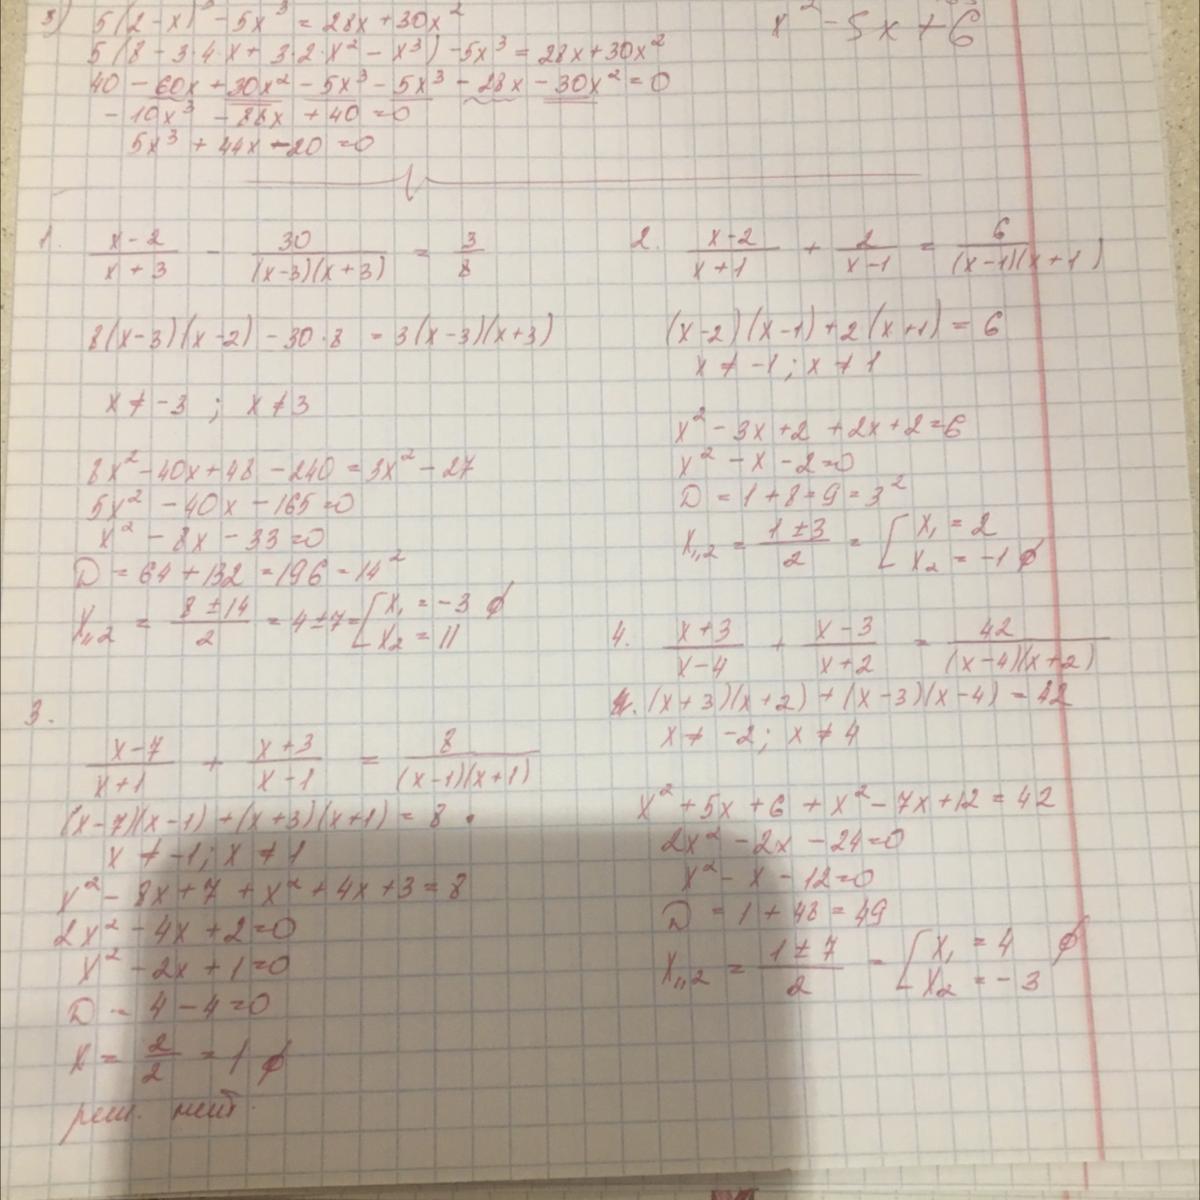 3) 5(2-x)³ - 5x³ = 28x + 30x²
x² - 5x + 6
5(8 - 3·4·x + 3·2·x² - x³) - 5x³ = 28x + 30x²
40 - 60x + 30x² - 5x³ - 5x³ - 28x - 30x² = 0
- 10x³ - 88x + 40 = 0
5x³ + 44x - 20 = 0
1. (x-2)/(x+3) - 30/((x-3)(x+3)) = 3/8
8(x-3)(x-2) - 30·8 = 3(x-3)(x+3)
x ≠ -3 ; x ≠ 3
8x² - 40x + 48 - 240 = 3x² - 27
5x² - 40x - 165 = 0
x² - 8x - 33 = 0
D = 64 + 132 = 196 = 14²
x₁,₂ = (8 ± 14)/2 = 4 ± 7 = [x₁ = -3 ∅
x₂ = 11
2. (x-2)/(x+1) + 2/(x-1) = 6/((x-1)(x+1))
(x-2)(x-1) + 2(x+1) = 6
x ≠ -1 ; x ≠ 1
x² - 3x + 2 + 2x + 2 = 6
x² - x - 2 = 0
D = 1 + 8 = 9 = 3²
x₁,₂ = (1 ± 3)/2 = [x₁ = 2
x₂ = -1 ∅
3.
(x-7)/(x+1) + (x+3)/(x-1) = 8/((x-1)(x+1))
(x-7)(x-1) + (x+3)(x+1) = 8
x ≠ -1 ; x ≠ 1
x² - 8x + 7 + x² + 4x + 3 = 8
2x² - 4x + 2 = 0
x² - 2x + 1 = 0
D = 4 - 4 = 0
x = 2/2 = 1 ∅
реш. нет.
4. (x+3)/(x-4) + (x-3)/(x+2) = 42/((x-4)(x+2))
4. (x+3)(x+2) + (x-3)(x-4) = 42
x ≠ -2 ; x ≠ 4
x² + 5x + 6 + x² - 7x + 12 = 42
2x² - 2x - 24 = 0
x² - x - 12 = 0
D = 1 + 48 = 49
x₁,₂ = (1 ± 7)/2 = [x₁ = 4 ∅
x₂ = -3